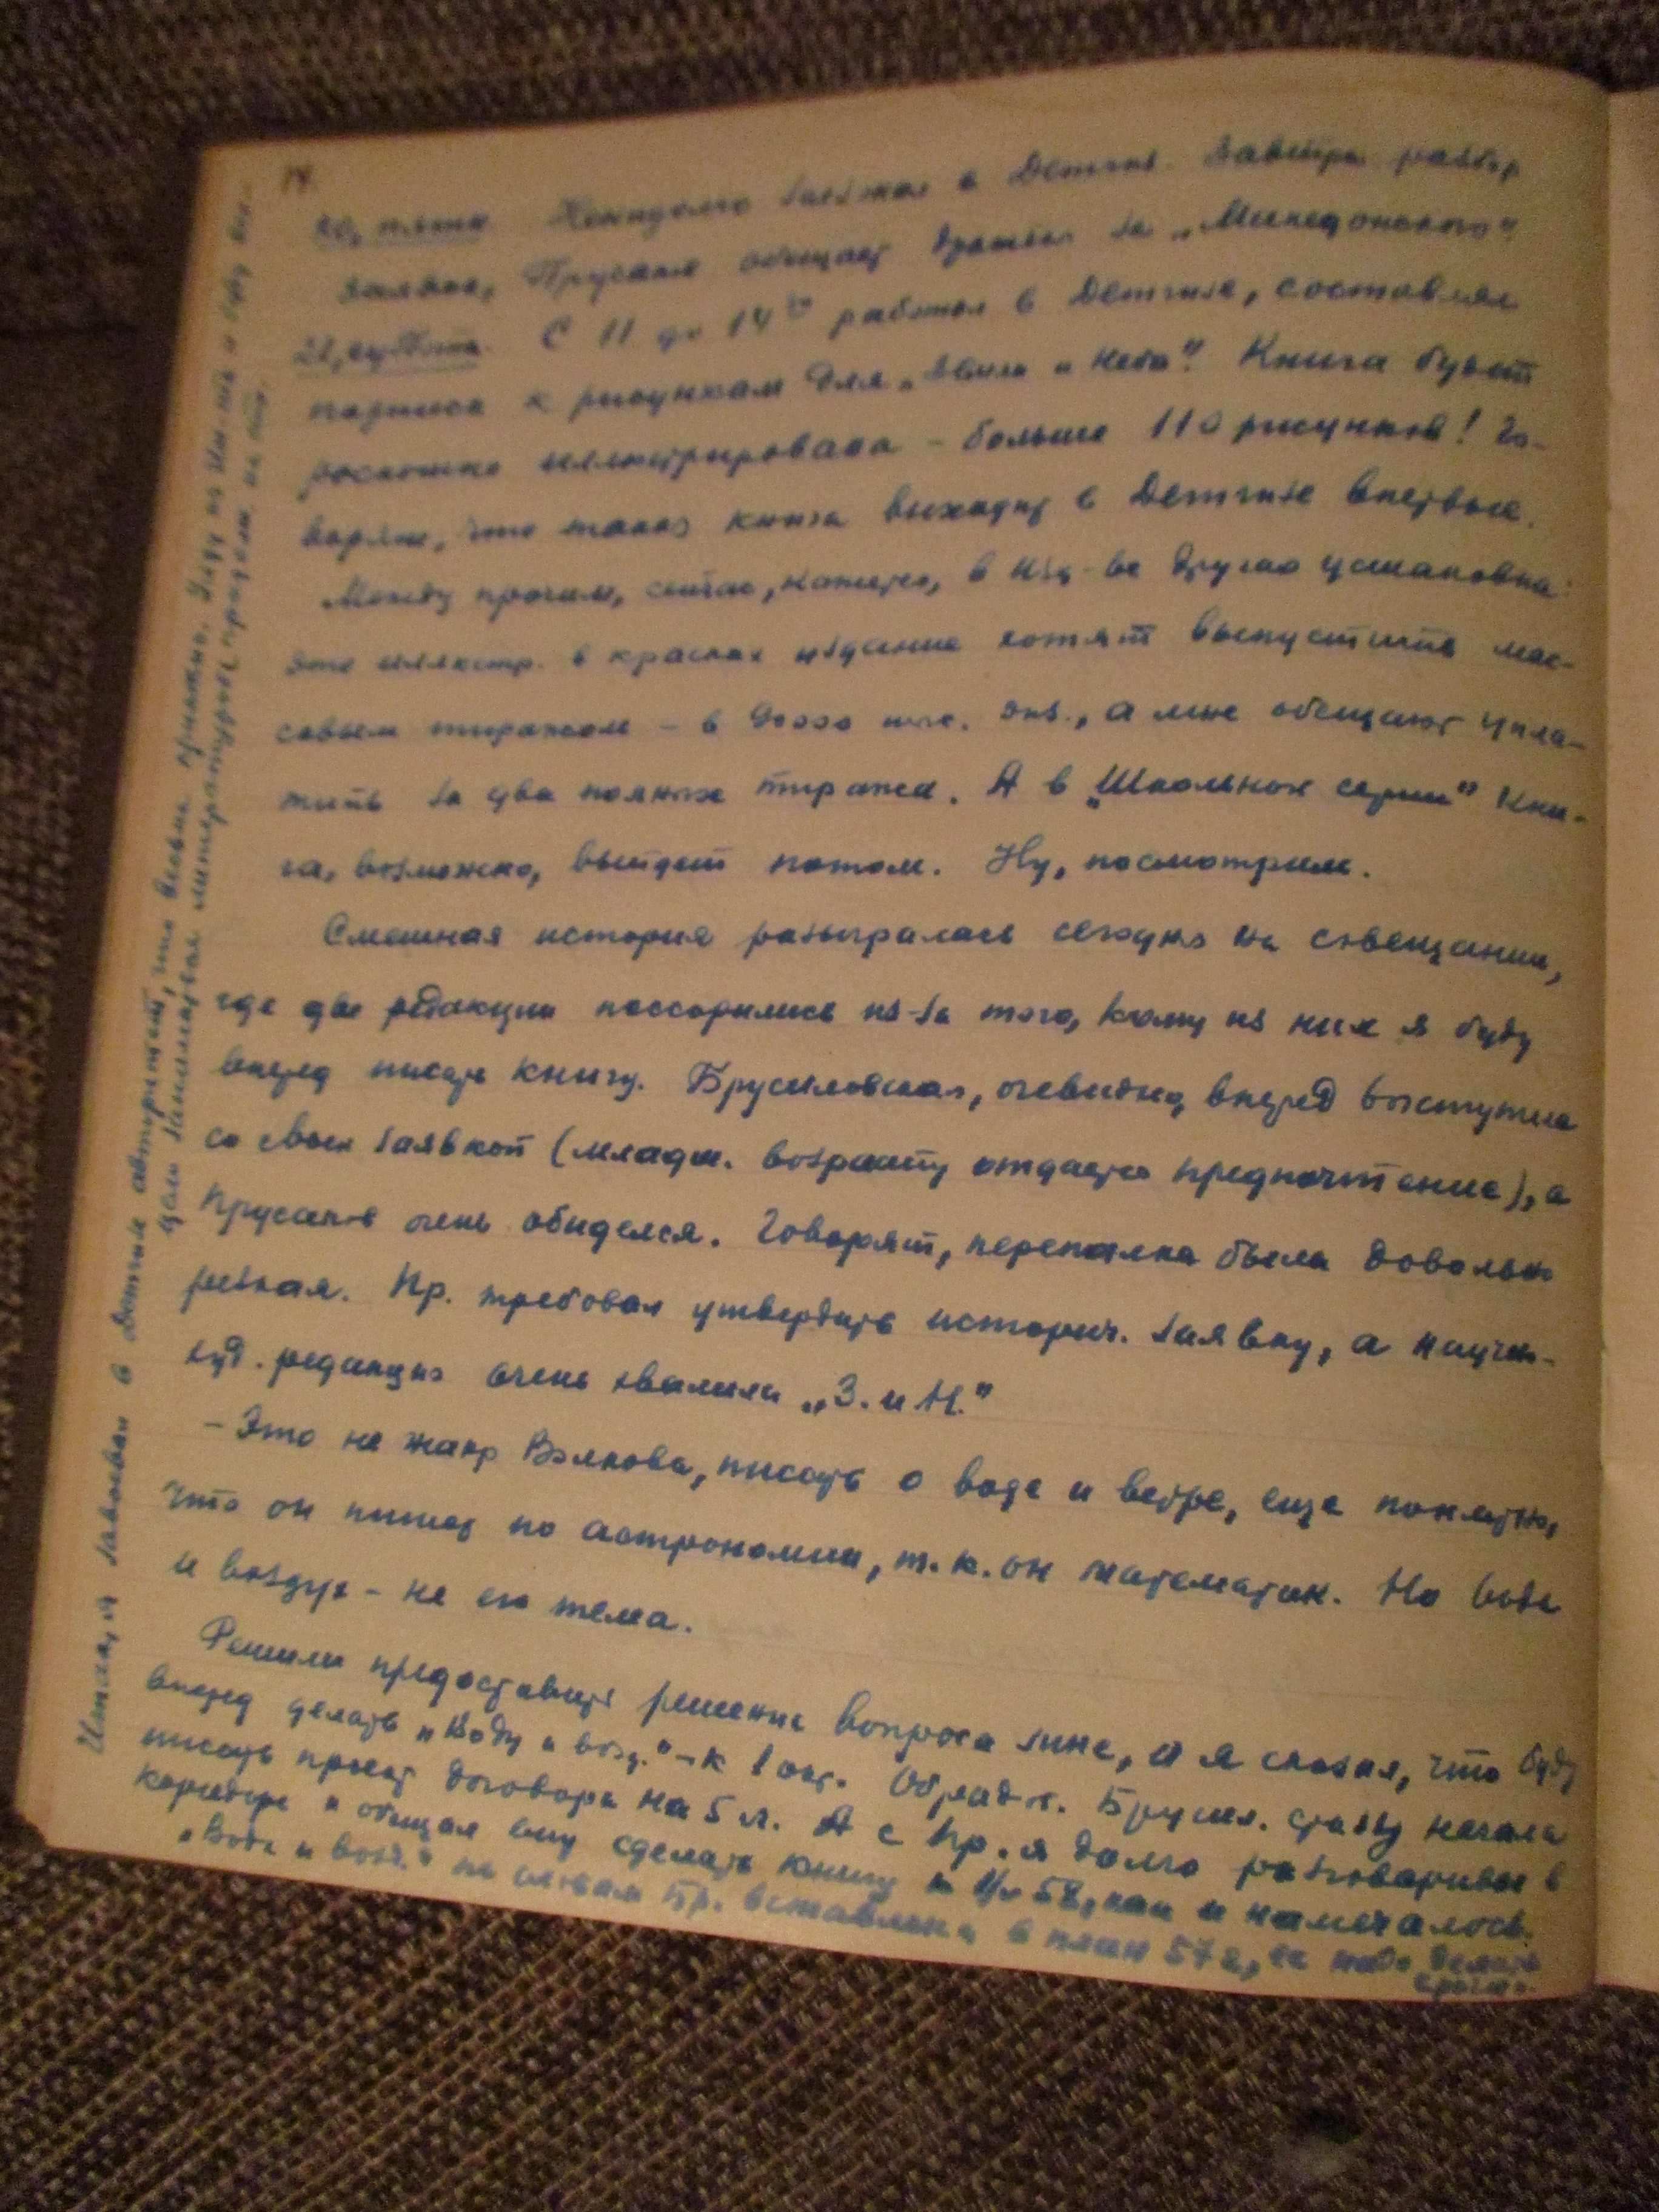 20, пятн. Ненадолго заезжал в Детгиз. Завтра разбор
заявок, Прусаков обещает драться за „Македонского“.
21, суббота. С 11 до 14 работал в Детгизе, составлял
подписи к рисункам для „Земли и Неба“. Книга будет
роскошно иллюстрирована – больше 110 рисунков! Го-
ворят, что такая книга выходит в Детгизе впервые.
Между прочим, сейчас, кажется, в изд-ве другая установка:
это иллюстр. в красках издание хотят выпустить мас-
совым тиражом – в тыс. экз., а мне обещают упла-
тить за два полных тиража. А в „Школьной серии“ кни-
га, возможно, выйдет потом. Ну, посмотрим.
Смешная история разыгралась сегодня на совещании,
где две редакции поссорились из-за того, кому из них я буду
вперед писать книгу. Брусиловская, очевидно, вперед выступила
со своей заявкой (младш. возрасту отдается предпочтение), а
Прусаков очень обиделся. Говорят, перепалка была довольно
резкая. Пр. требовал утвердить историч. заявку, а научн-
худ. редакция очень хвалила „З. и Н.“
– Это не жанр Волкова, писать о воде и ветре, еще понятно,
что он пишет по астрономии, т.к. он математик. Но вода
и воздух – не его тема.
Решили предоставить решение вопроса мне, и я сказал, что буду
вперед делать „Воду и возд.“ – к 1 окт. Обрадов. Брусил. сразу начала
писать проект договора на 5 л. А с Пр. я долго разговаривал в
коридоре и обещал ему сделать книгу к 58, как и намечалось.
„Вода и возд.“ по словам Бр. вставлена в план 57 г., ее надо делать
срочно.
Итак, я завоевал в Детгизе авторитет, что весьма приятно. Уйду из Ин-та и буду все-
цело заниматься литературой,